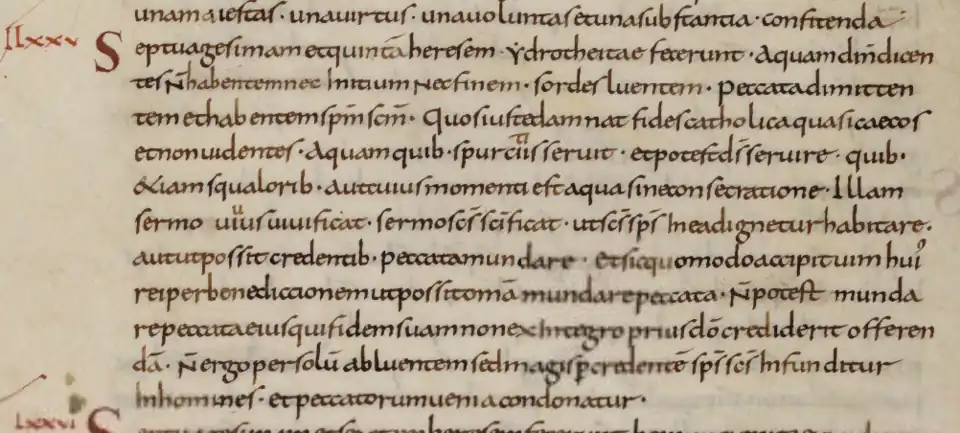 una maiestas · una uirtus · una uoluntas et una substantia · confitenda
IIlxxv Septuagesimam et quintā heresem · ydrotheitae fecerunt · Aquam dm̄ dicen
tes n̄ habentem nec Initium nec finem · sordes luentem · peccata dimitten
tem et habentem sp̄m scm̄ · Quos iuste damnat fides catholica quasi caecos
et non uidentes · Aquam quib · spurcitiis seruit · et potest ds̄ seruire · quib ·
&iam squalorib · aut cuius momenti est aqua sine consecratione · Illam
sermo uiuus uiuificat · sermo scs̄ scīficat · ut scs̄ sps̄ In ea dignetur habitare ·
aut ut possit credentib · peccata mundare · Et sic quomodo accipit uim hui᾽
rei per benediccionem ut possit omā mundare peccata · N̄ potest munda
re peccata eius qui fidem suam non ex Integro prius dō crediderit offeren
dā · N̄ ergo per solū abluentem sed magis p̄ credentē sps̄ scs̄ Infunditur
In homines · et peccatorum uenia condonatur ·
lxxvi